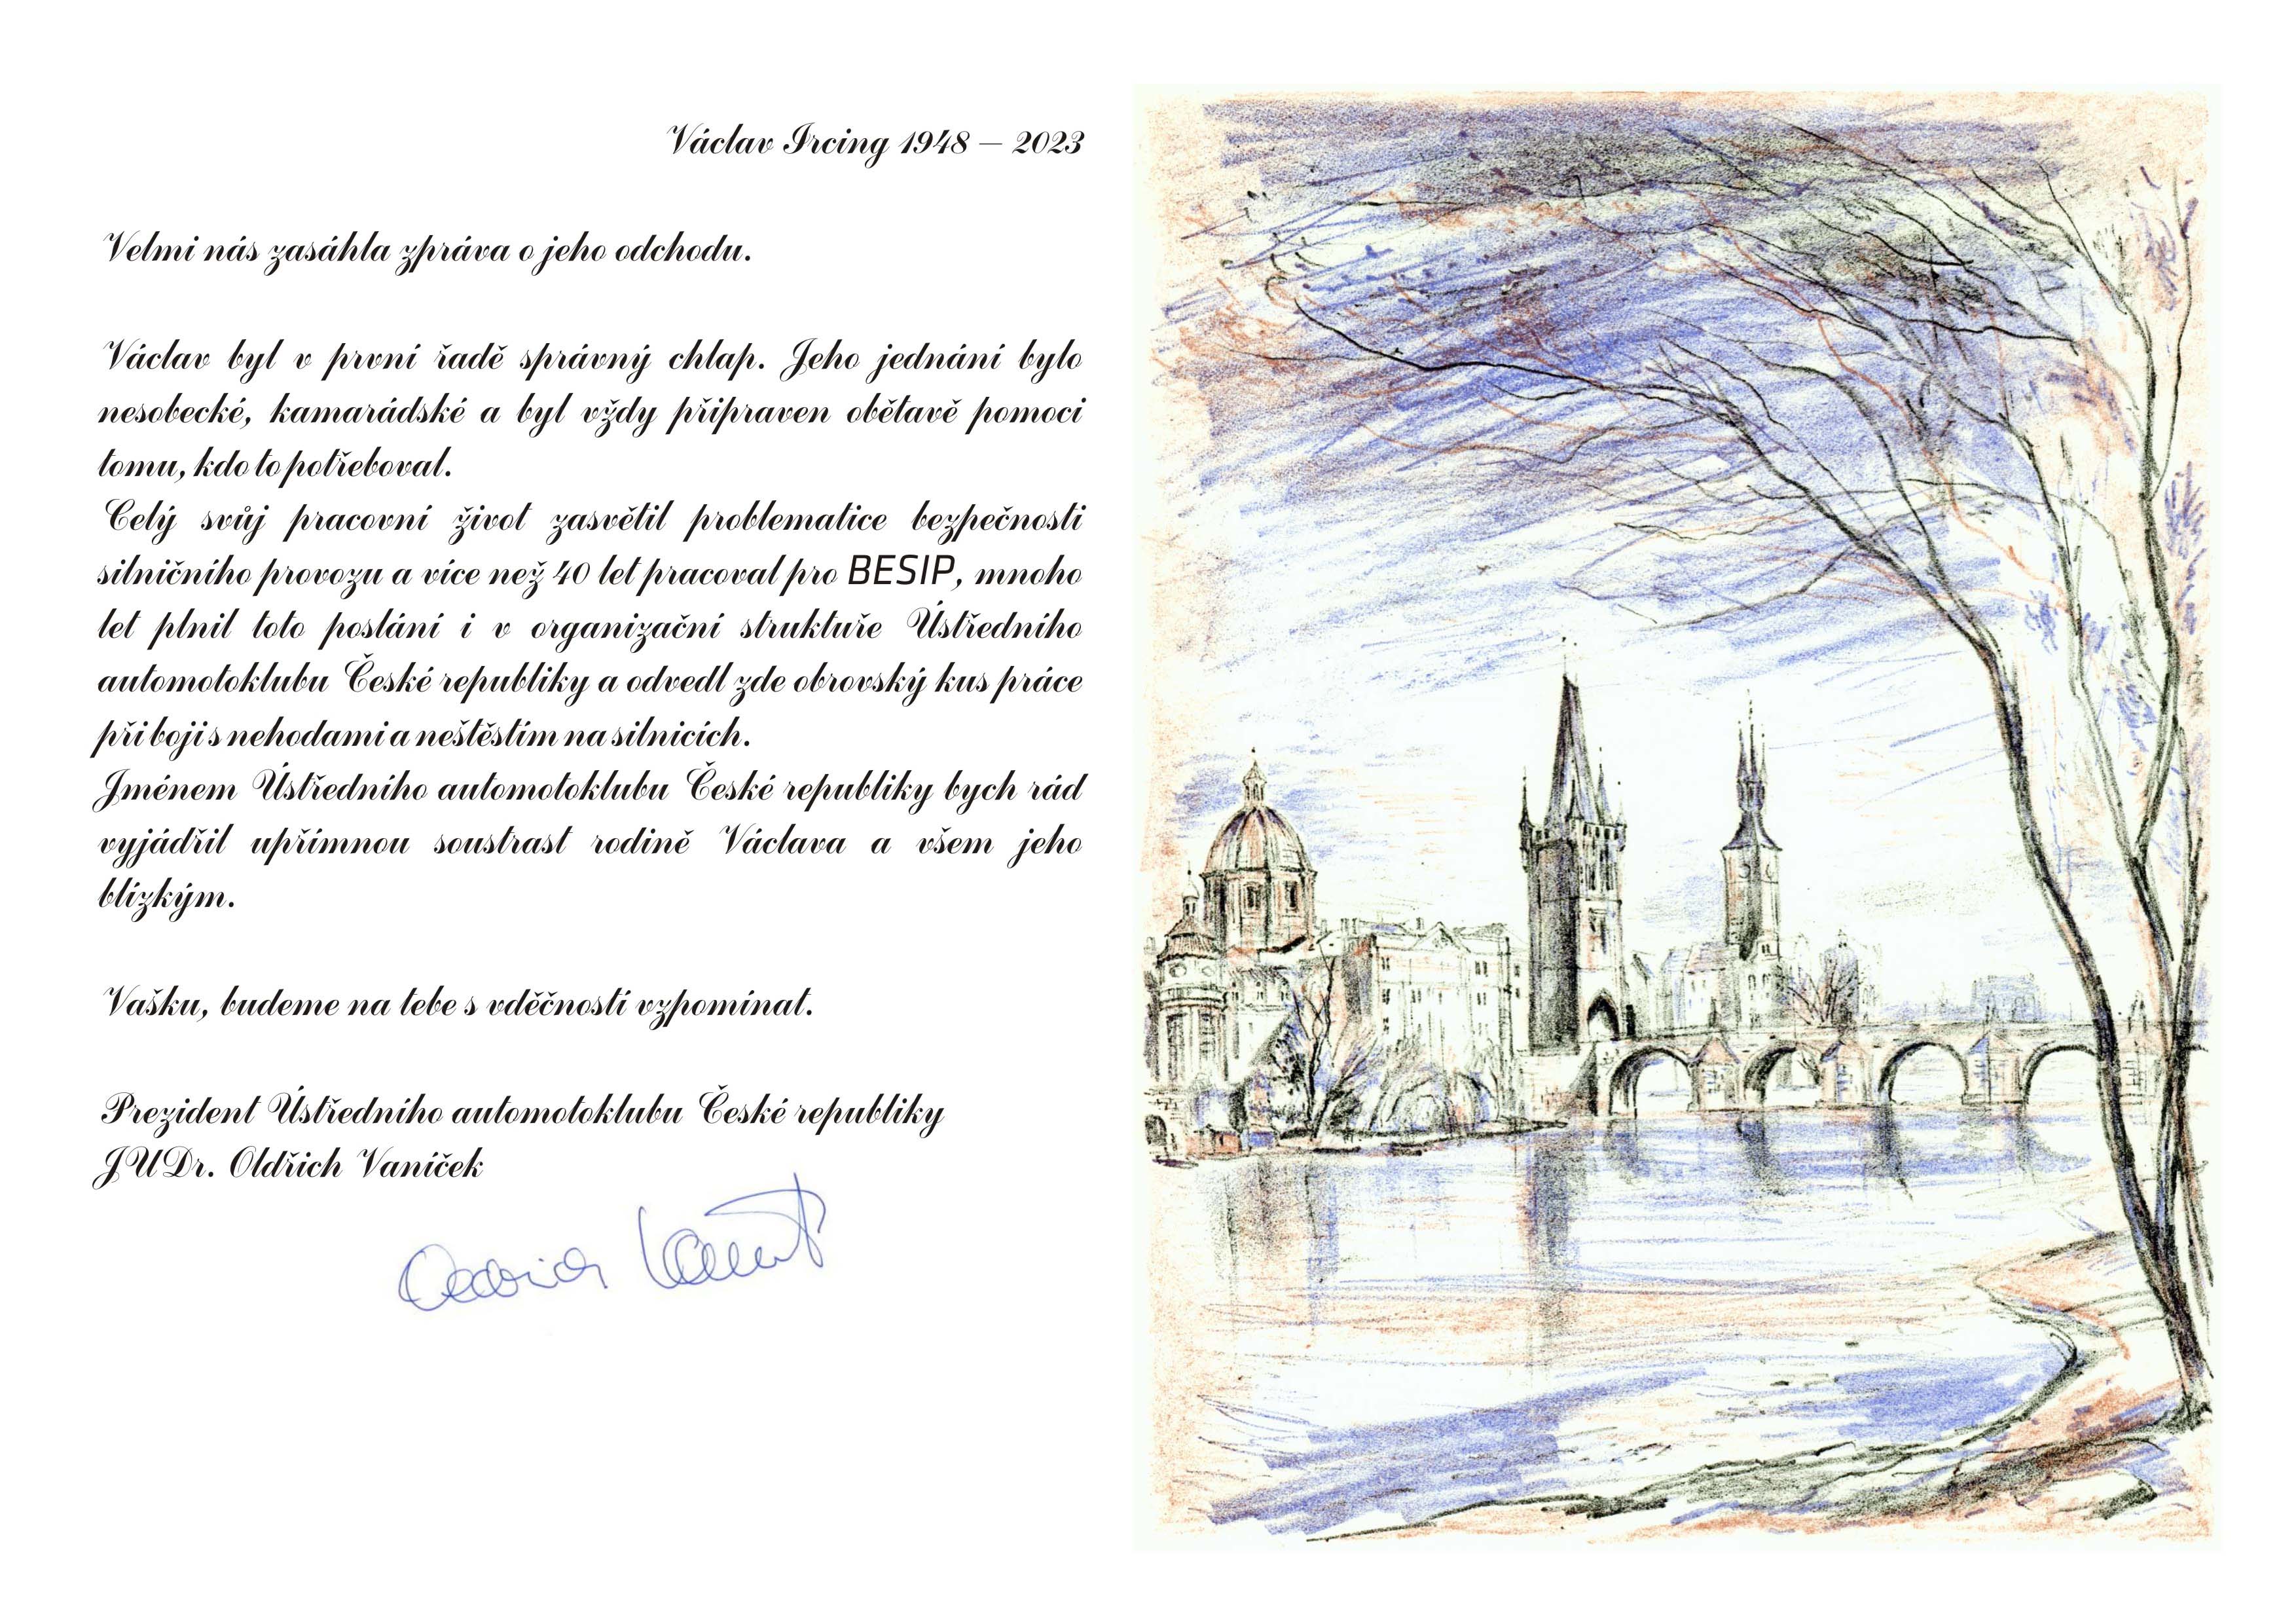 Václav Ircing 1948 – 2023
Velmi nás zasáhla zpráva o jeho odchodu.
Václav byl v první řadě správný chlap. Jeho jednání bylo
nesobecké, kamarádské a byl vždy připraven obětavě pomoci
tomu, kdo to potřeboval.
Celý svůj pracovní život zasvětil problematice bezpečnosti
silničního provozu a více než 40 let pracoval pro BESIP, mnoho
let plnil toto poslání i v organizační struktuře Ústředního
automotoklubu České republiky a odvedl zde obrovský kus práce
při boji s nehodami a neštěstím na silnicích.
Jménem Ústředního automotoklubu České republiky bych rád
vyjádřil upřímnou soustrast rodině Václava a všem jeho
blízkým.
Vašku, budeme na tebe s vděčností vzpomínat.
Prezident Ústředního automotoklubu České republiky
JUDr. Oldřich Vaníček